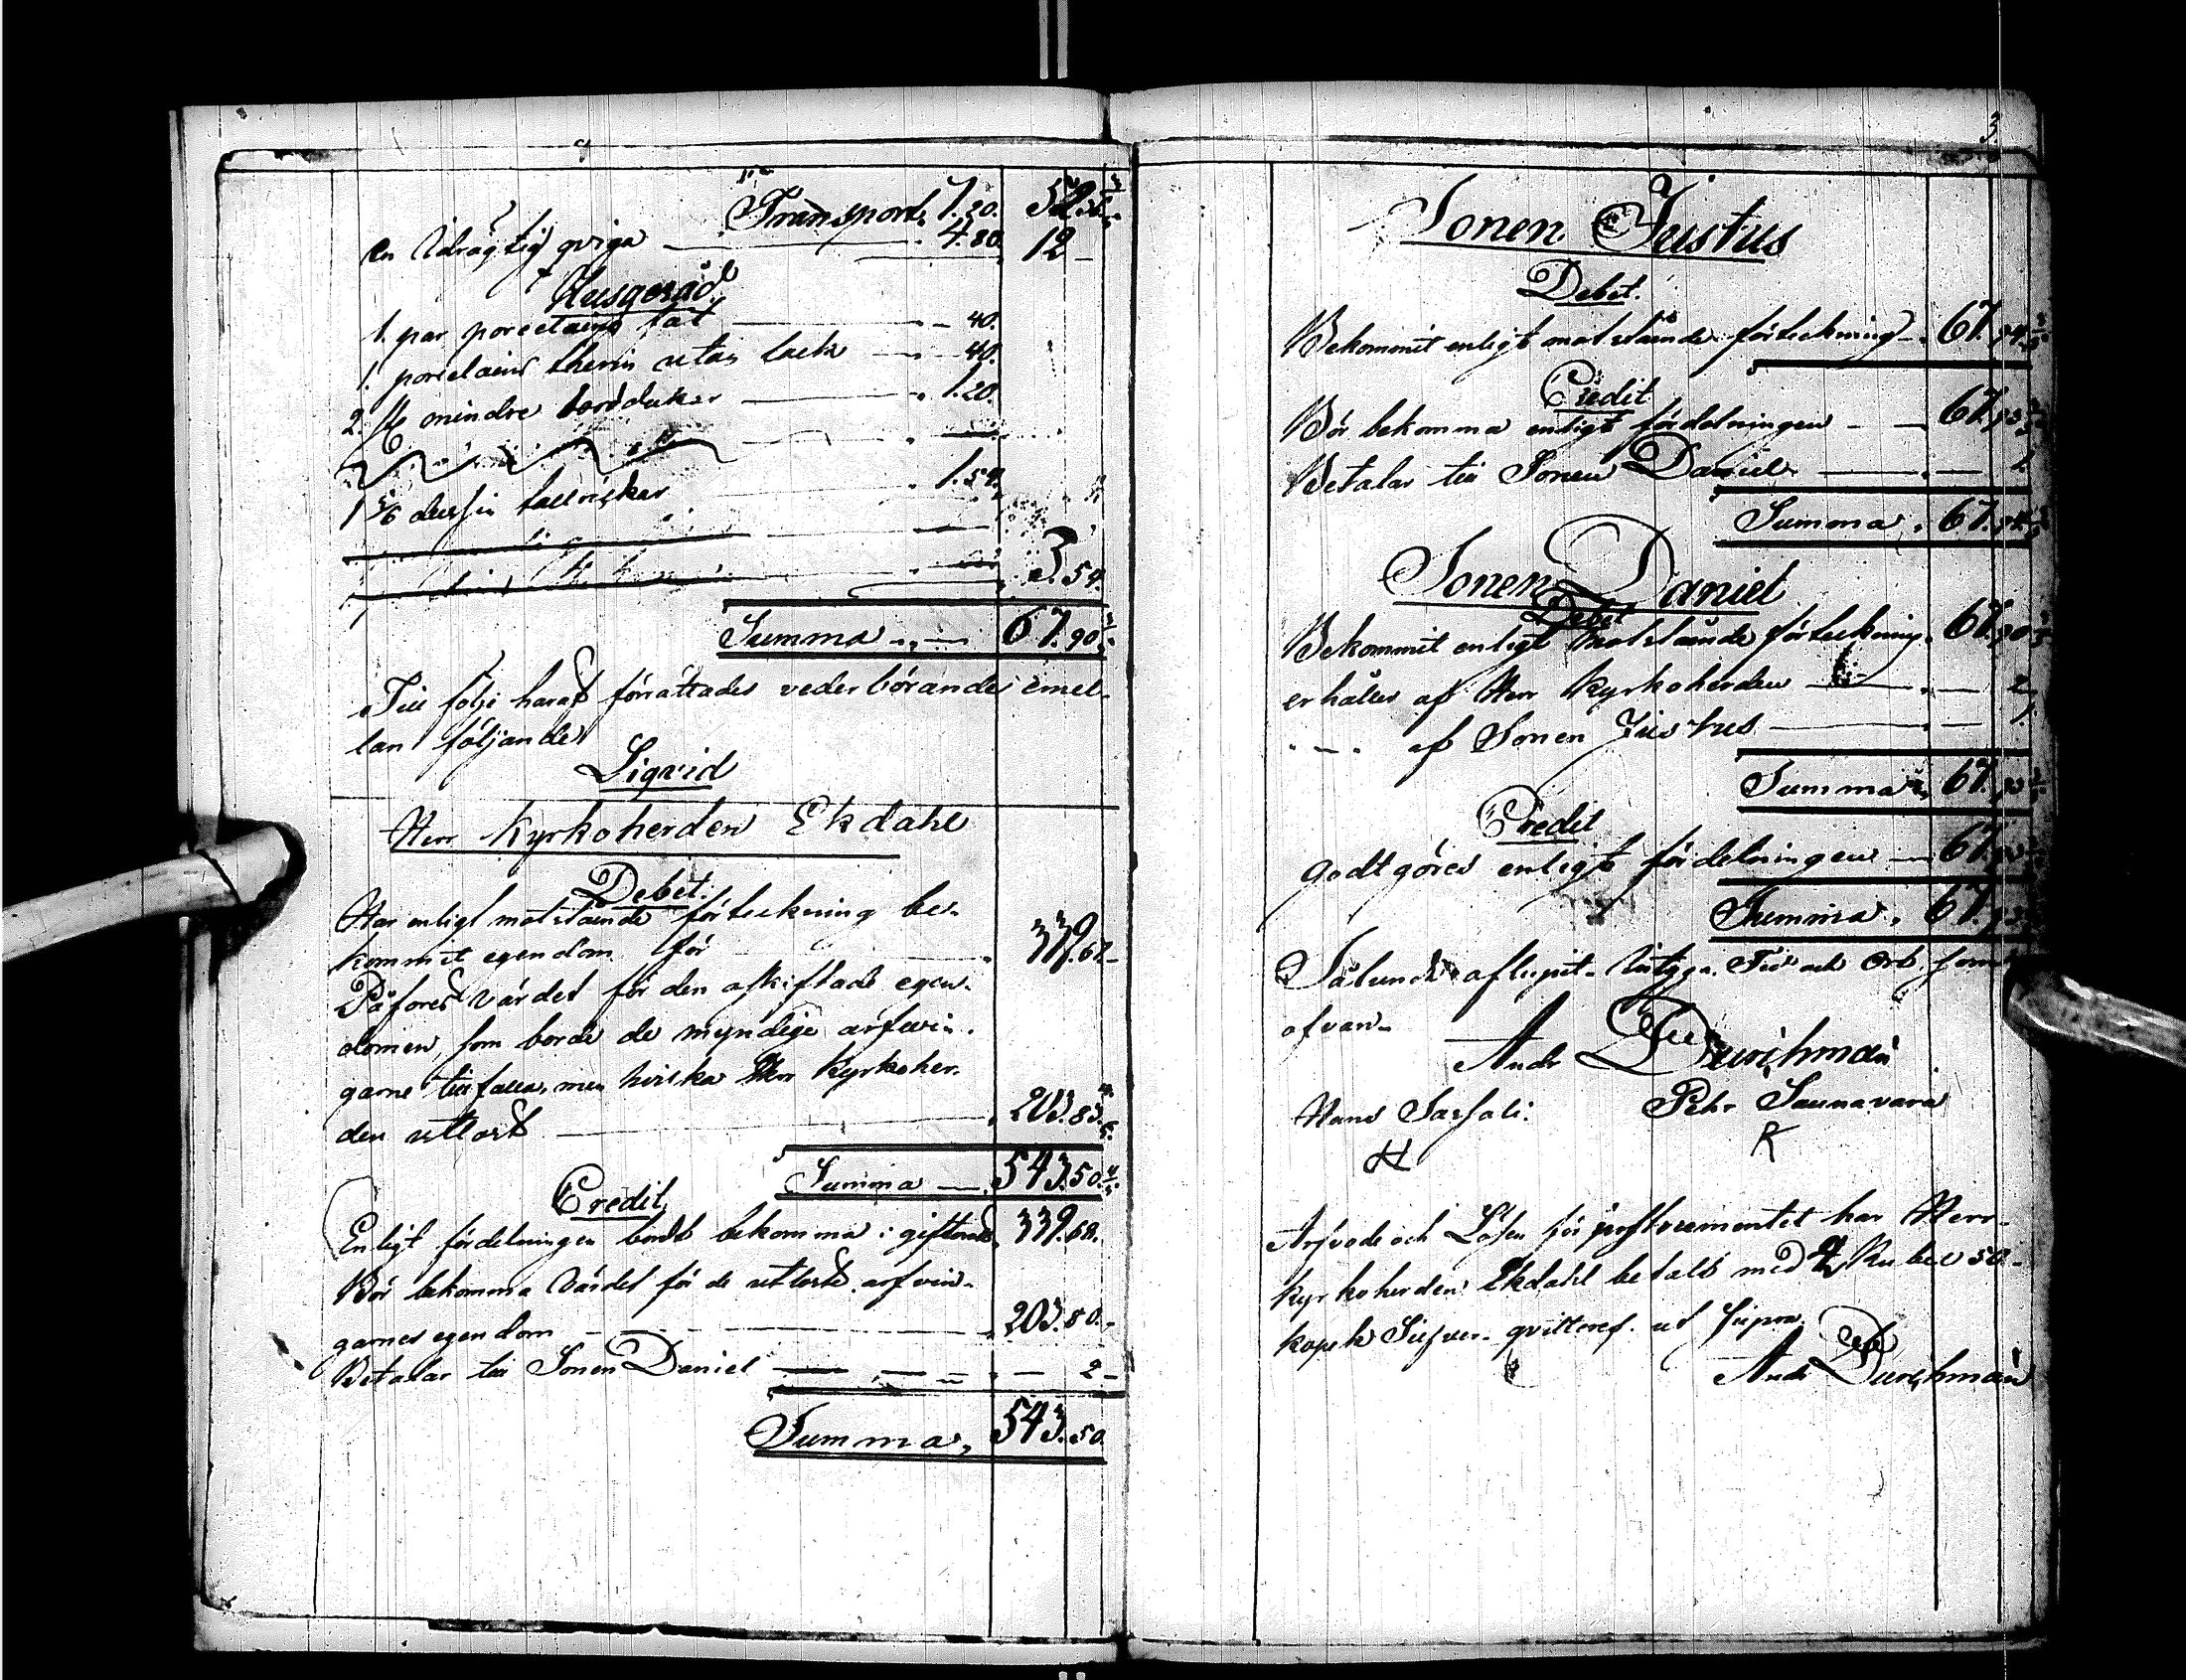 Transport. 7.20. 52.36 2/5.
en Idrägtig qviga — 4.80. 12 –
Husgeråd
1. par porcelains fat — 40.
1. porcelains therin utan lock — 40.
2. st mindre bordduker — 1.20.
1 5/6 dussin tallriskar 1.54.
3.54.
Summa — 67.90 2/5
Till följe haraf förrättades vederbörande emel-
lan följande
Liqvid
Herr Kyrkoherden Ekdahl
Debet.
Har enligt motstående förteckning be-
kommit egendom för 339.67 –
Påföres värdet för den afskiftade egen-
domen, som borde de myndige arfvin-
garne tillfalla, men hvilka Herr Kyrkoher-
den utlöst — 203.83 4/5.
Summa — 543.50 4/5.
Credit
Enligt fördelningen bordt bekomma i giftorätt 339.68.
Bör bekomma värdet för de utlöste arfvin-
garnes egendom — 203.80. –
Betalar till Sonen Daniel — 2 –
Summa, 543.50.
3
Sonen Justus
Debet.
Bekommit enligt motstående förteckning — 67.94 2/5
Credit
Bör bekomma enligt fördelningen — 67.93 2/5
Betalar till Sonen Daniel — 1.
Summa, 67.94 2/5
Sonen Daniel
Debet
Bekommit enligt motstående förteckning. 67.90 2/5
erhåller af Herr Kyrkoherden — 2,
" — " af Sonen Justus — 1.
Summa 67.93 2/5
Credit
godtgöres enligt fördelningen — 67.93 2/5
Summa, 67.93
Sålunda aflupit. Intyga. Tid och Ort som
ofvan –
Andr Durchman
Hans Pehr Saunavara
H K
Arfvode och Lösen för instrumentet har Herr
Kyrkoherden Ekdahl betalt med Rubel 50
kopek Silfver. qvitteras. ut supra.
Andr Durchman